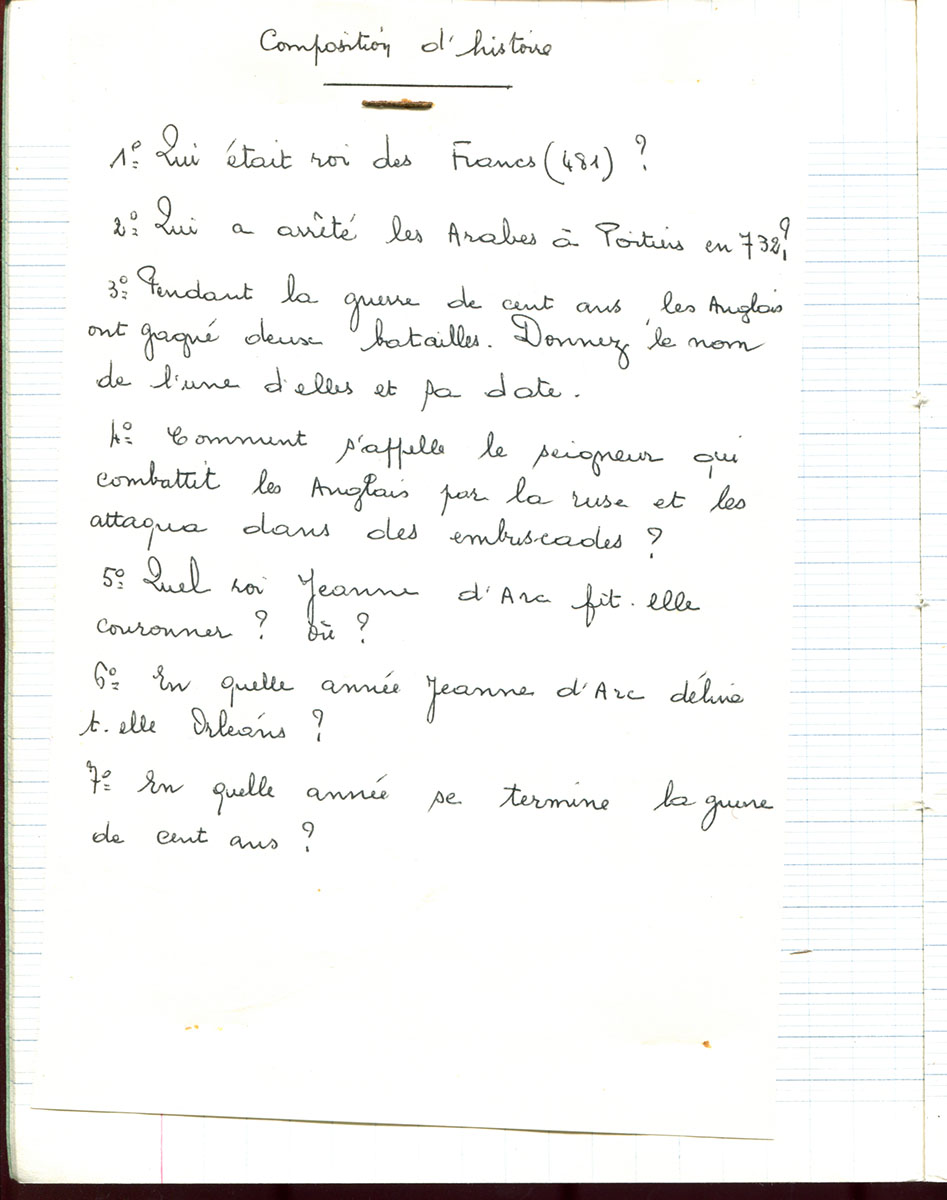 Composition d'histoire
1º Qui était roi des Francs (481) ?
2º Qui a arrêté les Arabes à Poitiers en 732 ?
3º Pendant la guerre de cent ans, les Anglais
ont gagné deux batailles. Donnez le nom
de l'une d'elles et sa date.
4º Comment s'appelle le seigneur qui
combattit les Anglais par la ruse et les
attaqua dans des embuscades ?
5º Quel roi Jeanne d'Arc fit-elle
couronner ? Où ?
6º En quelle année Jeanne d'Arc délivra
t-elle Orléans ?
7º En quelle année se termine la guerre
de cent ans ?